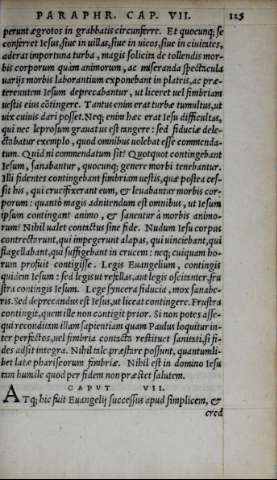 PARAPHR. CAP. VII. 125
perunt ægrotos in grabbatis circunferre. Et quocunq; se
conferret Iesus, siue in uillas, siue in uicos, siue in ciuitates,
aderat importuna turba, magis solicita de tollendis mor-
bis corporum quàm animorum, ac miseranda spectacula
uarijs morbis laborantium exponebant in plateis, ac præ-
tereuntem Iesum deprecabantur, ut liceret uel fimbriam
uestis eius cōtingere. Tantus enim erat turbæ tumultus, ut
uix cuiuis dari posset. Neq; enim hæc erat Iesu difficultas,
qui nec leprosum grauatus est tangere: sed fiduciæ dele-
ctabatur exemplo, quod omnibus uolebat esse commenda-
tum. Quid ni commendatum sit? Quotquot contingebant
Iesum, sanabantur, quocunq; genere morbi tenebantur.
Illi fidentes contingebant fimbriam uestis, quæ postea ces-
sit his, qui crucifixerant eum, & leuabantur morbis cor-
porum: quantò magis adnitendum est omnibus, ut Iesum
ipsum contingant animo, & sanentur à morbis animo-
rum? Nihil ualet contactus sine fide. Nudum Iesu corpus
contrectarunt, qui impegerunt alapas, qui uinciebant, qui
flagellabant, qui suffigebant in crucem: neq; cuiquam ho-
rum profuit contigisse. Legis Euangelium, contingis
quidem Iesum: sed legis ut resiles, aut legis oscitanter, fru
stra contingis Iesum. Lege syncera fiducia, mox sanabe-
ris. Sed deprecandus est Iesus, ut liceat contingere. Frustra
contingit, quem ille non contigit prior. Si non potes asse-
qui reconditam illam sapientiam quam Paulus loquitur in-
ter perfectos, uel fimbria contacta restituet sanitati, si fi-
des adsit integra. Nihil tale præstare possunt, quantumli-
bet latæ phariseorum fimbriæ. Nihil est in domino Iesu
tam humile quod per fidem non præstet salutem.
CAPVT VII.
ATq; hic fuit Euangelij successus apud simplicem, &
cred